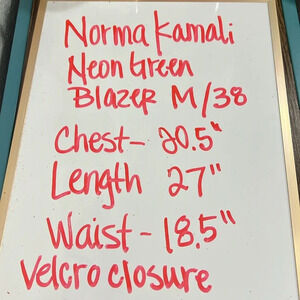 Norma Kamali
Neon Green
Blazer M/38
Chest- 20.5"
Length 27"
Waist - 18.5"
Velcro closure